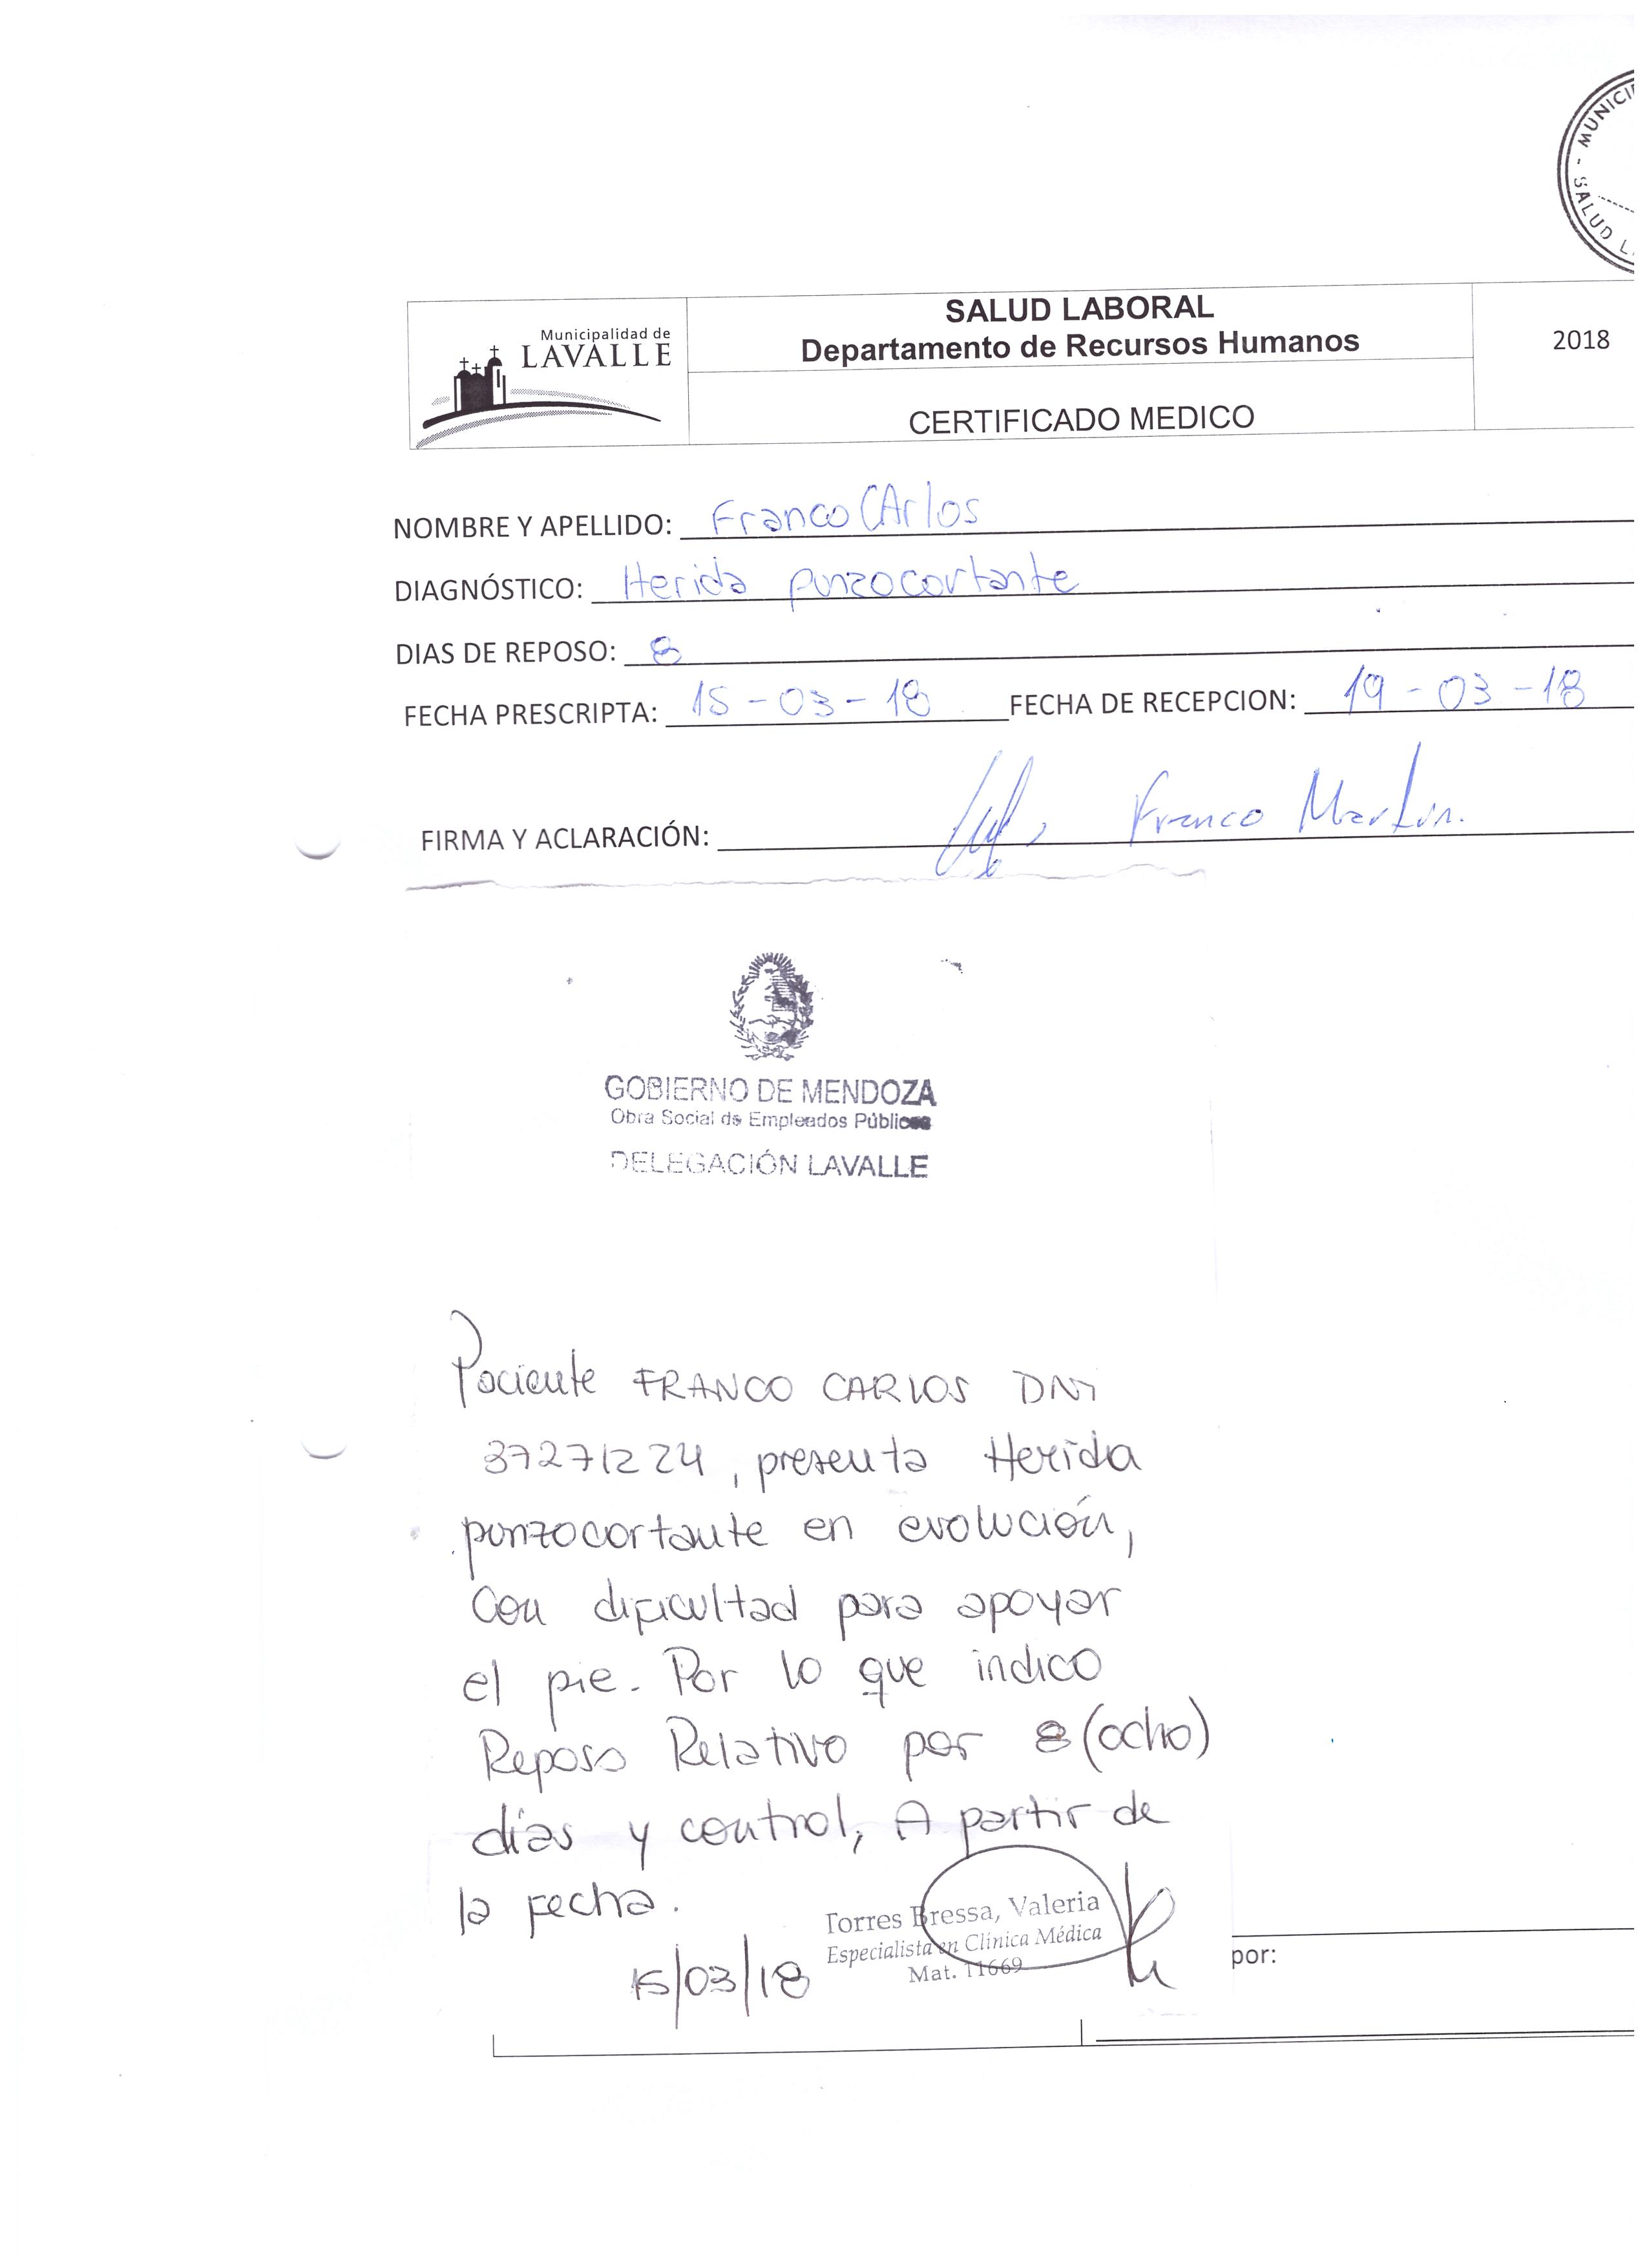 MUNICI
- SALUD L
Municipalidad de
LAVALLE
SALUD LABORAL
Departamento de Recursos Humanos
2018
CERTIFICADO MEDICO
NOMBRE Y APELLIDO: Franco CArlos
DIAGNÓSTICO: Herida punzocortante
DIAS DE REPOSO: 8
FECHA PRESCRIPTA: 15-03-18 FECHA DE RECEPCION: 19-03-18
FIRMA Y ACLARACIÓN: Franco Martin.
GOBIERNO DE MENDOZA
Obra Social de Empleados Públicos
DELEGACIÓN LAVALLE
Paciente FRANCO CARLOS DNI
37271224, presenta Herida
punzocortante en evolución,
con dificultad para apoyar
el pie. Por lo que indico
Reposo Relativo por 8 (ocho)
días y control, A partir de
la fecha.
15/03/18
Torres Bressa, Valeria
Especialista en Clínica Médica
Mat. 11669
por: